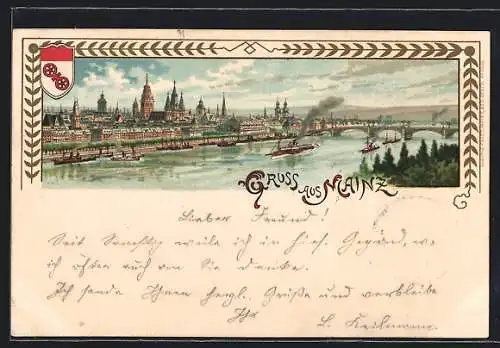 GRUSS AUS MAINZ
Lieber Freund!
Seit Samstag weile ich in hies. Gegend, wo
ich öfter auch an Sie denke.
Ich sende Ihnen herzl. Grüße und verbleibe
Ihr L.